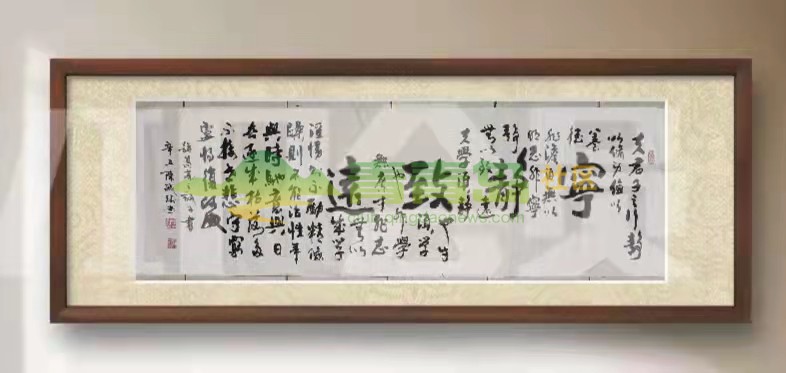 寧静致遠
夫君子之行静
以修身儉以
養
德
非澹泊無以
明志非寧
静
無以致遠
夫學須静
也才
須學
也非學
無廣才非志
無以
成學
淫慢則不能勵精險
躁則不能治性年
與時馳意與日
去遂成枯落多
不接世悲守窮
廬將復何及
諸葛亮誡子書
辛丑陳